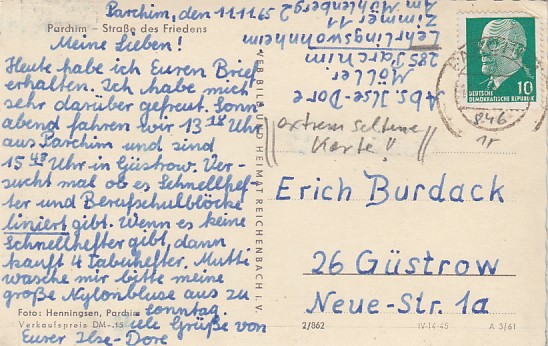 Parchim, den 11.11.65
Parchim – Straße des Friedens
Meine Lieben!
Heute habe ich Euren Brief
erhalten. Ich habe mich
sehr darüber gefreut. Sonn
abend fahren wir 13 18 Uhr
aus Parchim und sind
15 48 Uhr in Güstrow. Ver-
sucht mal ob es Schnellhef-
ter und Berufschulblöcke
liniert gibt. Wenn es keine
Schnellhefter gibt, dann
kauft 4 Tabuhefter. Mutti
wasche mir bitte meine
große Nylonbluse aus zu
Sonntag.
Viele Grüße von
Eurer Ilse-Dore
Foto: Henningsen, Parchim
Verkaufspreis DM -.15
VEB BILD UND HEIMAT REICHENBACH I. V.
Abs. Ilse-Dore
Möller
285 Parchim
Lehrlingswohnheim
Zimmer 11
Am Mühlenberg 2
extrem seltene
Karte!
10
DEUTSCHE
DEMOKRATISCHE REPUBLIK
846
Erich Burdack
26 Güstrow
Neue-Str. 1a
2/862
IV-14-45
A 3/61